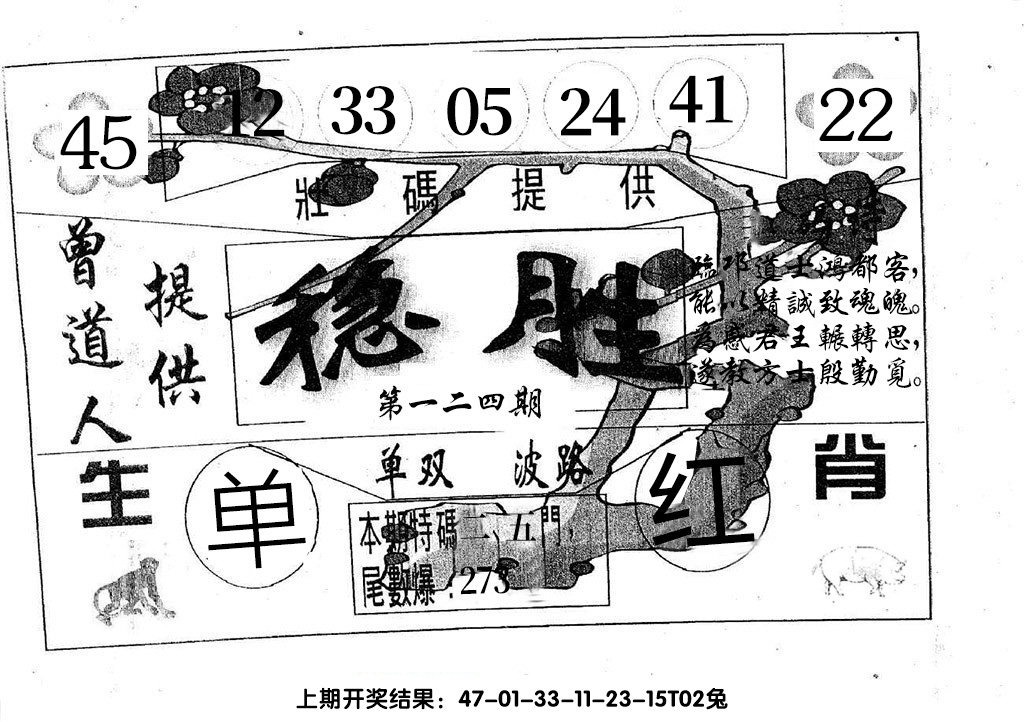 45 12 33 05 24 41 22
壯碼提供
特
曾道人
提供
穩胜
第一二四期
臨邛道士鴻都客，
能以精誠致魂魄。
為感君王輾轉思，
遂教方士殷勤覓。
单双 波路
生肖
单
红
本期特碼二、五門，
尾數爆：273
上期开奖结果：47-01-33-11-23-15T02兔